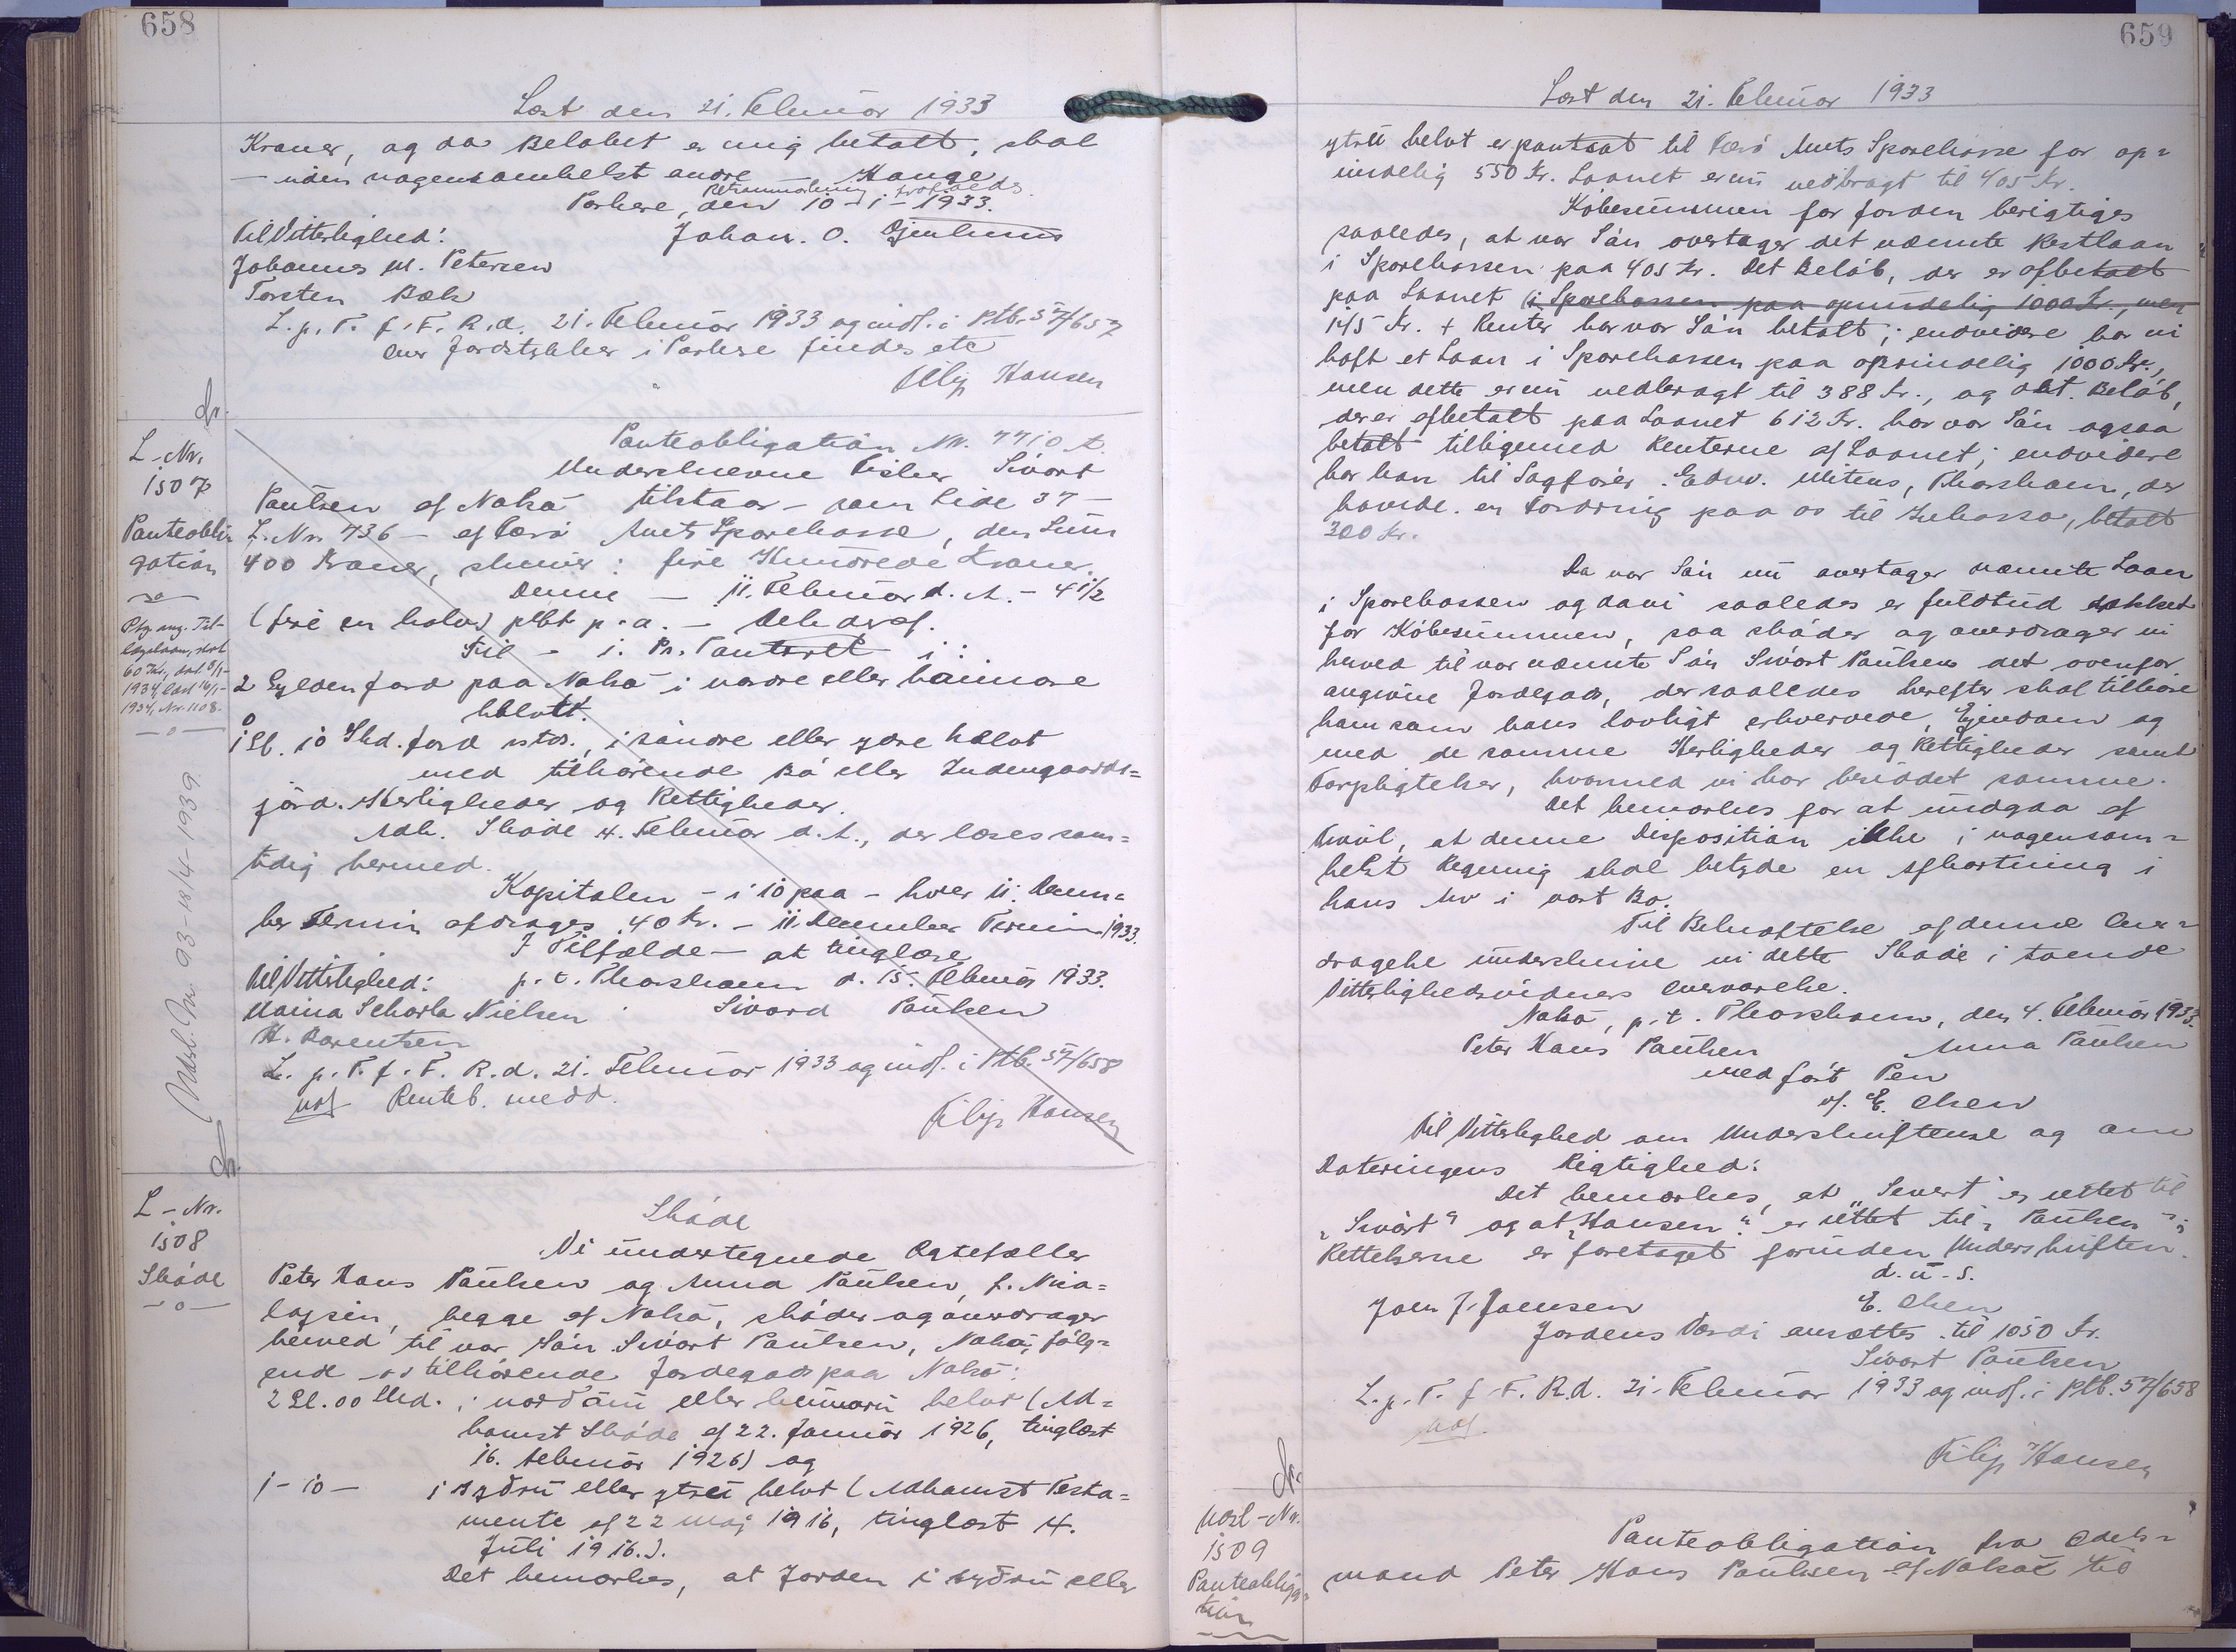 658
Læst den 21. Februar 1933
Kroner, og da Beløbet er mig betalt, skal
— uden nogensomhelst andre — Hange
Retsanmærkning
Porkere, den 10-1-1933.
Til Vitterlighed:
Johan. O. Djenhuus
Johannes M. Petersen
Torsten Bæk
L. p. T. f. F. R. d. 21. Februar 1933 og indf. i Ptb. 57/657
over Jordstykker i Porkere findes etc
Filip Hansen
L-Nr.
1507
Panteobli-
gation
Ptg. ang. Til-
60 Kr., dat. 8/1-
1934, læst 16/1-
1934, Nr. 1108.
—o—
Udsl. Nr. 93-18/4-1939.
Panteobligation Nr. 7710 A.
Underskrevne Fisker Sivert
Paulsen af Nolsø tilstaar — som Side 37 —
L. Nr. 736 — af Færø Amts Sparekasse, den Sum
400 Kroner, skriver: fire Hundrede Kroner.
Denne — 11. Februar d. A. — 4 1/2
(fire en halv) pCt p. a. — Deh deraf.
Til — 1. Pr. Panteret i:
2 Gylden Jord paa Nolsø i nordre eller heimare
hlvtt.
1 Gl. 10 Skd. Jord smst., i søndre eller ydre halvt
med tilhørende Bø eller Indengaards-
jord. Herligheder og Rettigheder.
Adk. Skøde 4. Februar d. A., der læses sam-
tidig hermed.
Kapitalen — i 10 paa — hver 11. Decem-
ber Termin afdrages 40 Kr. — 11. December Termin 1933.
I Tilfælde — at tinglæse
Til Vitterlighed: p. t. Thorshavn d. 15. Februar 1933.
Maina Scharla Nielsen Sivard Paulsen
H. Dorentsen
L. p. T. f. F. R. d. 21. Februar 1933 og indf. i Ptb. 57/658
Renteb. medd.
Filip Hansen
L-Nr.
1508
Skøde
—o—
Skøde
Vi undertegnede Ægtefæller
Peter Hans Paulsen og Anna Paulsen, f. Nia-
lajsen, begge af Nolsø, skøder og overdrager
herved til vor Søn Sivart Paulsen, Nolsø, følg-
ende os tilhørende Jordegods paa Nolsø:
2 Gl. 00 Skd. i norðaru eller heimaru helvt (Ad-
komst Skøde af 22. Januar 1926, tinglæst
16. Februar 1926) og
1-10- i syðru eller ytru helvt (Adkomst Testa-
mente af 22 Maj 1916, tinglæst 4.
Juli 1916.).
Det bemærkes, at Jorden i syðru eller
659
Læst den 21. Februar 1933
ytru helvt er pantsat til Færø Amts Sparekasse for op-
rindelig 550 Kr. Laanet er nu nedbragt til 405 Kr.
Købesummen for Jorden berigtiges
saaledes, at vor Søn overtager det nævnte Restlaan
i Sparekassen paa 405 Kr. Det Beløb, der er afbetalt
paa Laanet (i Sparekassen paa oprindelig 1000 Kr., men
145 Kr. + Renter har vor Søn betalt; endvidere har vi
haft et Laan i Sparekassen paa oprindelig 1000 Kr.,
men dette er nu nedbragt til 388 Kr., og det Beløb,
der er afbetalt paa Laanet 612 Kr. har vor Søn ogsaa
betalt tilligemed Renterne af Laanet; endvidere
har han til Sagfører Edw. Mitens, Thorshavn, der
havde en Fordring paa os til Inkasso, betalt
300 Kr.
Da vor Søn nu overtager nævnte Laan
i Sparekassen og da vi saaledes er fuldtud dækket
for Købesummen, saa skøder og overdrager vi
herved til vor nævnte Søn Sivart Paulsen det ovenfor
angivne Jordegods, der saaledes herefter skal tilhøre
ham som hans lovligt erhvervede Ejendom og
med de samme Herligheder og Rettigheder samt
Forpligtelser, hvormed vi har besiddet samme.
Det bemærkes for at undgaa af
Tvivl, at denne Disposition ikke i nogensom-
helst Regning skal betyde en Afkortning i
hans Arv i vort Bo.
Til Bekræftelse af denne Over-
dragelse underskrive vi dette Skøde i tvende
Vitterlighedsvidners Overværelse.
Nolsø, p. t. Thorshavn, den 4. Februar 1933.
Peter Hans Paulsen Anna Paulsen
med ført Pen
v. E. Olsen
Til Vitterlighed om Underskrifterne og om
Dateringens Rigtighed:
Det bemærkes, at „Sivert" er rettet til
„Sivart" og at „Hansen" er rettet til „Paulsen";
Rettelserne er foretaget forinden Underskriften.
d. u. s.
Joen J. Joensen E. Olsen
Jordens Værdi ansættes til 1050 Kr.
Sivart Paulsen
L. p. T. f. F. R. d. 21. Februar 1933 og indf. i Ptb. 57/658
Filip Hansen
Udsl-Nr.
1509
Panteobliga-
tion
Panteobligation fra Odels-
mand Peter Hans Paulsen af Nolsø til